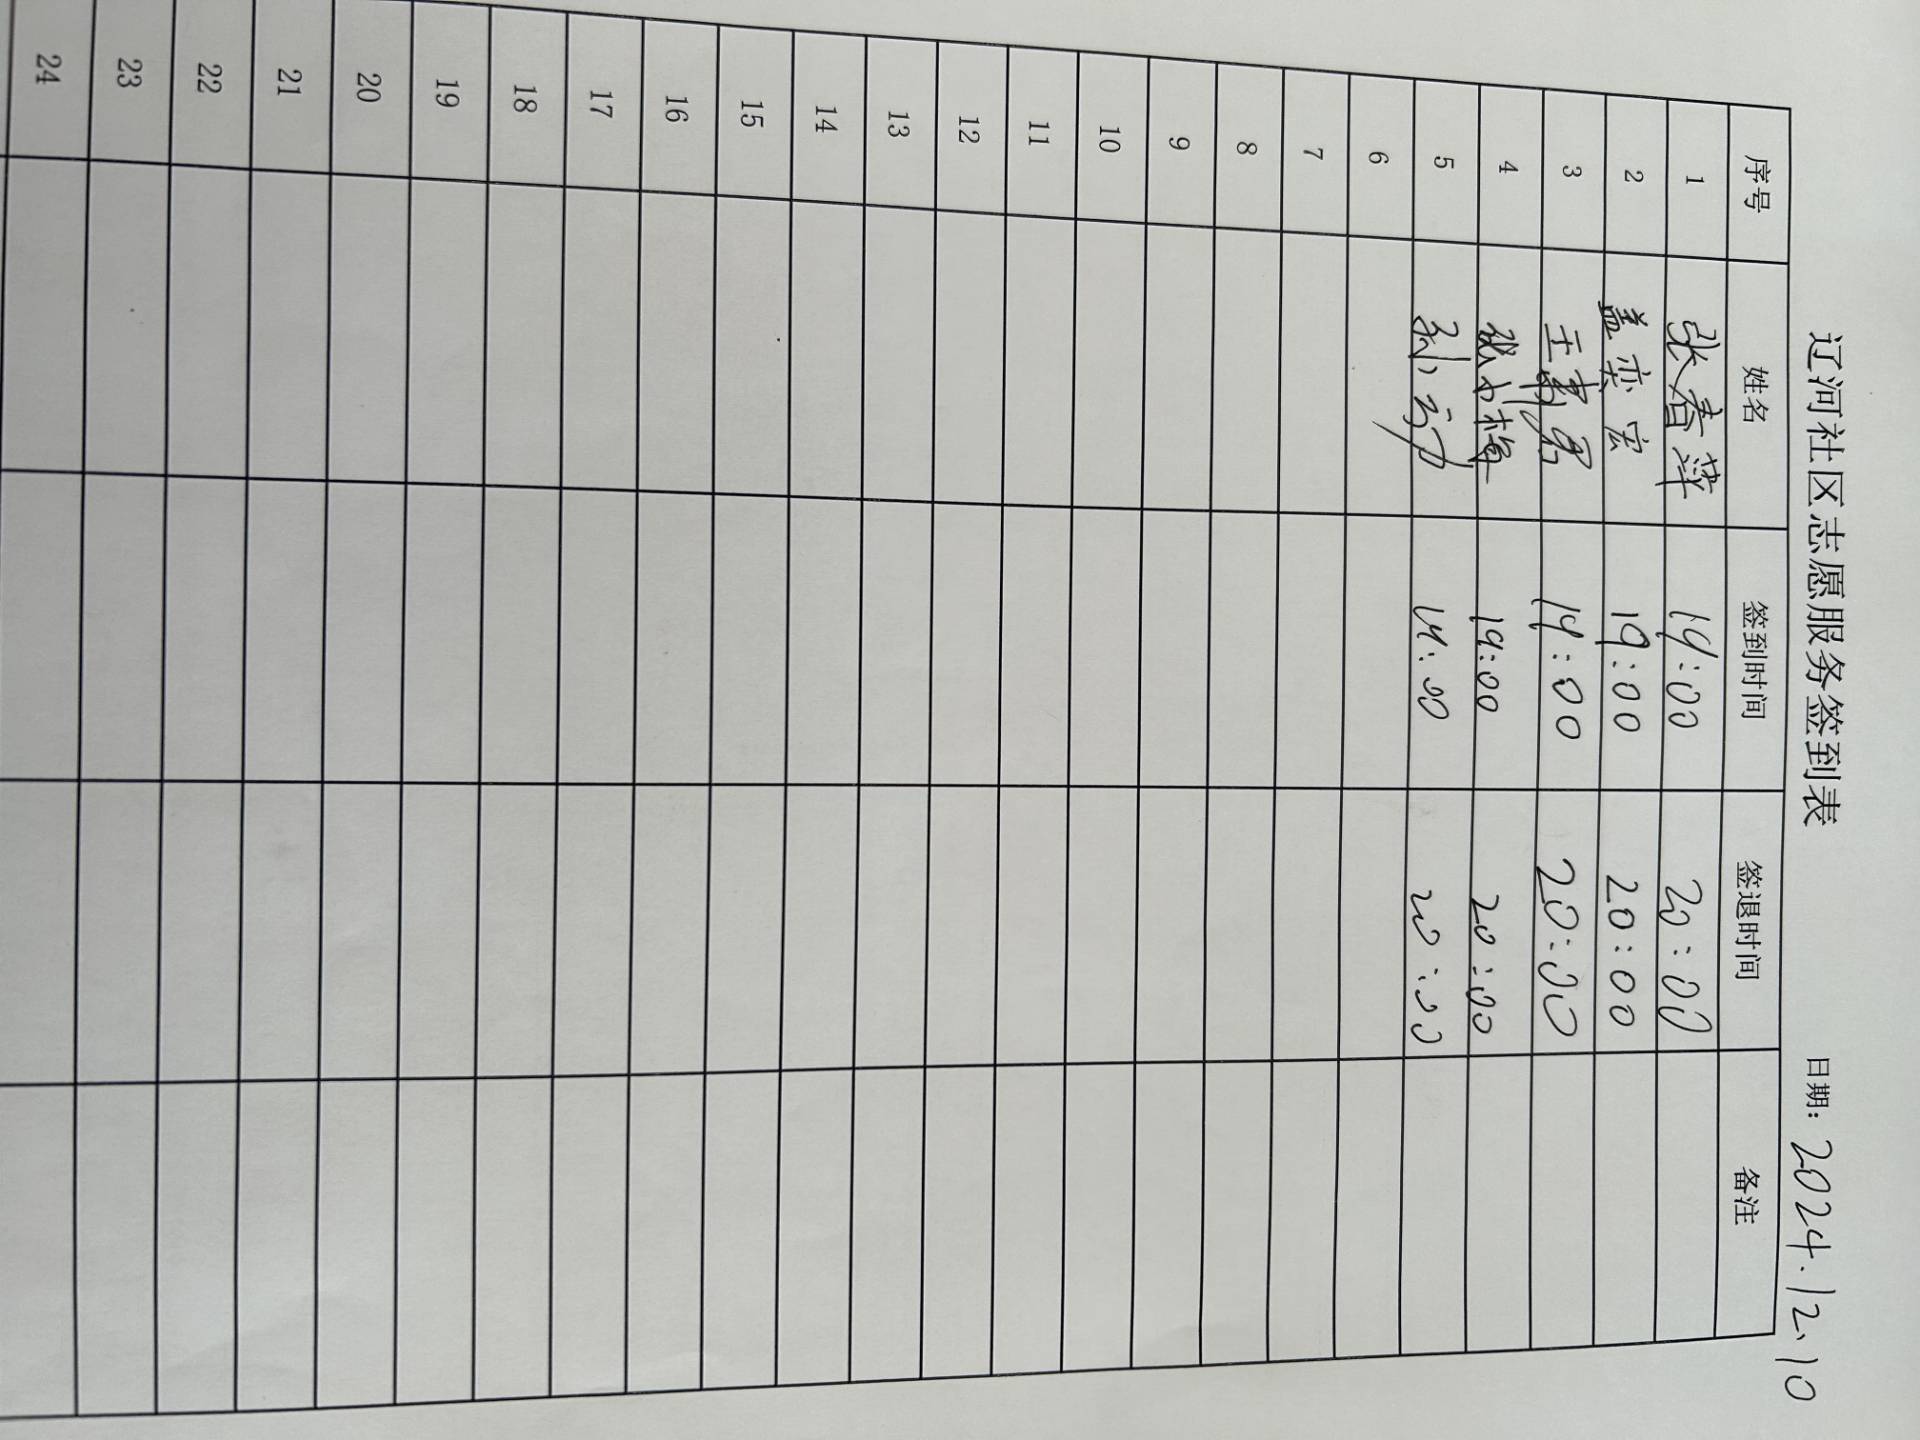 辽河社区志愿服务签到表
日期: 2024.12.10
序号 姓名 签到时间 签退时间 备注
1 张春萍 19:00 20:00
2 盖奕宏 19:00 20:00
3 王 19:00 20:00
4 张小梅 19:00 20:00
5 孙 19:00 20:00
6
7
8
9
10
11
12
13
14
15
16
17
18
19
20
21
22
23
24